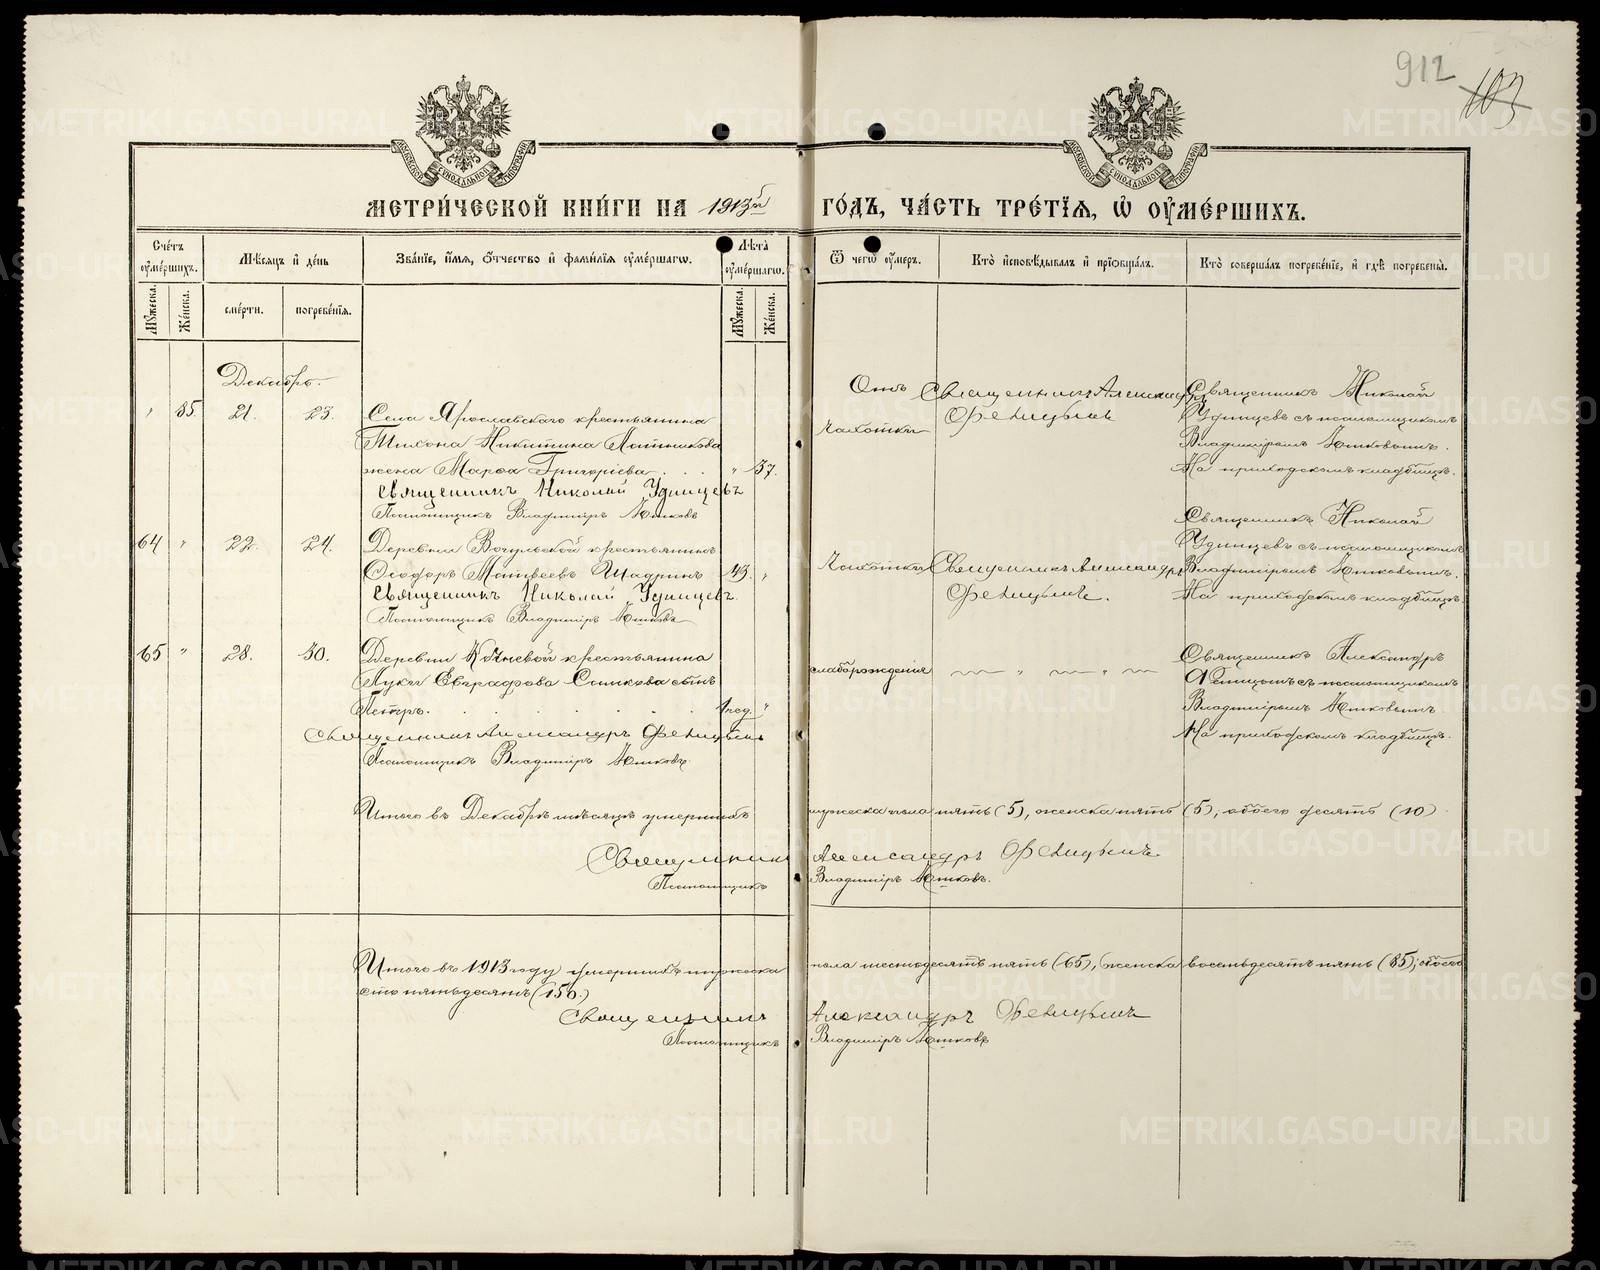 912
103
МЕТРИ́ЧЕСКОЙ КНИ́ГИ НА 1913й ГО́ДЪ, ЧА́СТЬ ТРЕ́ТІѦ, Ѡ ОУМЕ́РШИХЪ.
Сче́тъ оуме́ршихъ.
Мужеска.
Женска.
Мѣсяцъ и де́нь
сме́рти.
погребе́нія.
Зва́ніе, и́мя, о́тчество и фами́лія оуме́ршагѡ.
Лѣта̀ оуме́ршагѡ.
Мужеска.
Женска.
Ѿ чегѡ̀ оу́меръ.
Кто̀ исповѣ́дывалъ и пріобща́лъ.
Кто̀ соверша́лъ погребе́ніе, и гдѣ̀ погребены̀.
Декабрь.
" 85 21. 23. Села Ярославскаго крестьянина
Тихона Никитина
жена Марѳа Григоріева . . . " 57.
Священникъ Николай Удинцевъ
Псаломщикъ Владиміръ
Отъ чахотки
Священникъ Александръ
Священникъ Николай
Удинцевъ съ псаломщикомъ
Владиміромъ
На приходскомъ кладбищѣ.
64 " 22. 24. Деревни крестьянинъ
Ѳеодоръ Матвеевъ Шадринъ 43. "
Священникъ Николай Удинцевъ.
Псаломщикъ Владиміръ
Чахотки
Священникъ Александръ
Священникъ Николай
Удинцевъ съ псаломщикомъ
Владиміромъ
На приходскомъ кладбищѣ.
65 " 28. 30. Деревни Кочневой крестьянина
Луки Евграфова сынъ
Петръ. 1 нед. "
Священникъ Александръ
Псаломщикъ Владиміръ
слаборожденія
Священникъ Александръ
съ псаломщикомъ
Владиміромъ
На приходскомъ кладбищѣ.
Итого въ Декабрѣ мѣсяцѣ умершихъ мужеска пола пять (5), женска пять (5); обоего десять (10)
Священникъ Александръ
Псаломщикъ Владиміръ
Итого въ 1913 году умершихъ мужеска пола шестьдесятъ пять (65), женска восемьдесятъ пять (85); обоего
сто пятьдесятъ (150.)
Священникъ Александръ
Псаломщикъ Владиміръ
METRIKI.GASO-URAL.RU